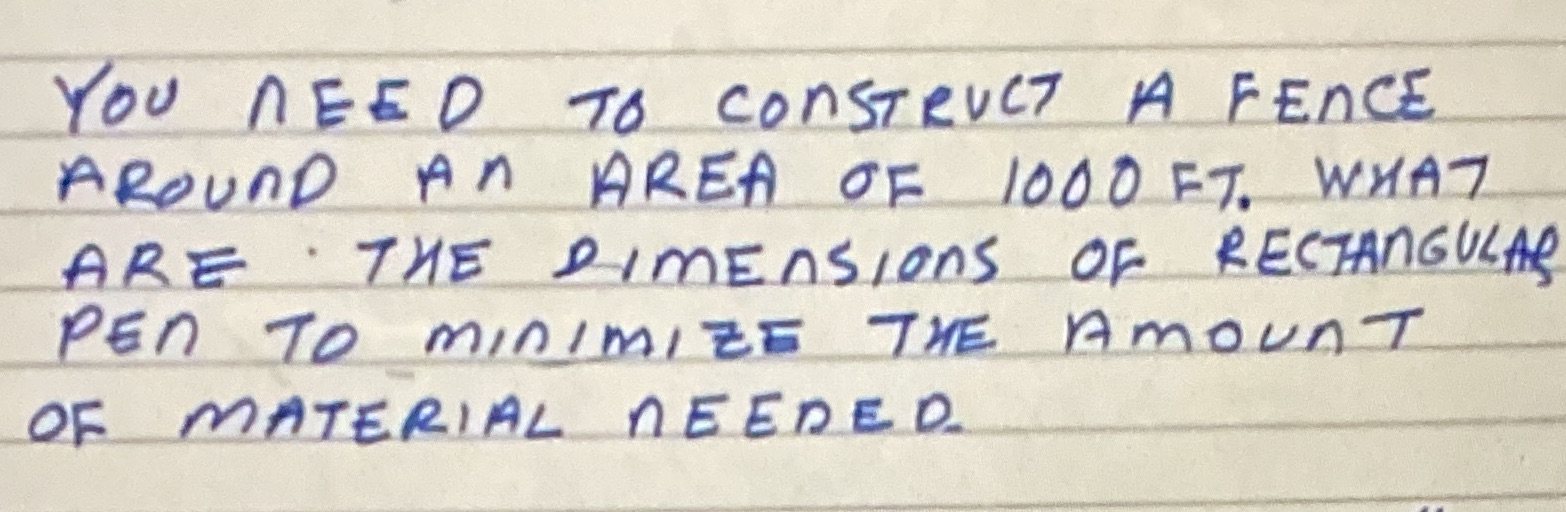 YOU NEED TO CONSTRUCT A FENCE
AROUND AN AREA OF 1000 FT. WHAT
ARE THE DIMENSIONS OF RECTANGULAR
PEN TO MINIMIZE THE AMOUNT
OF MATERIAL NEEDED.